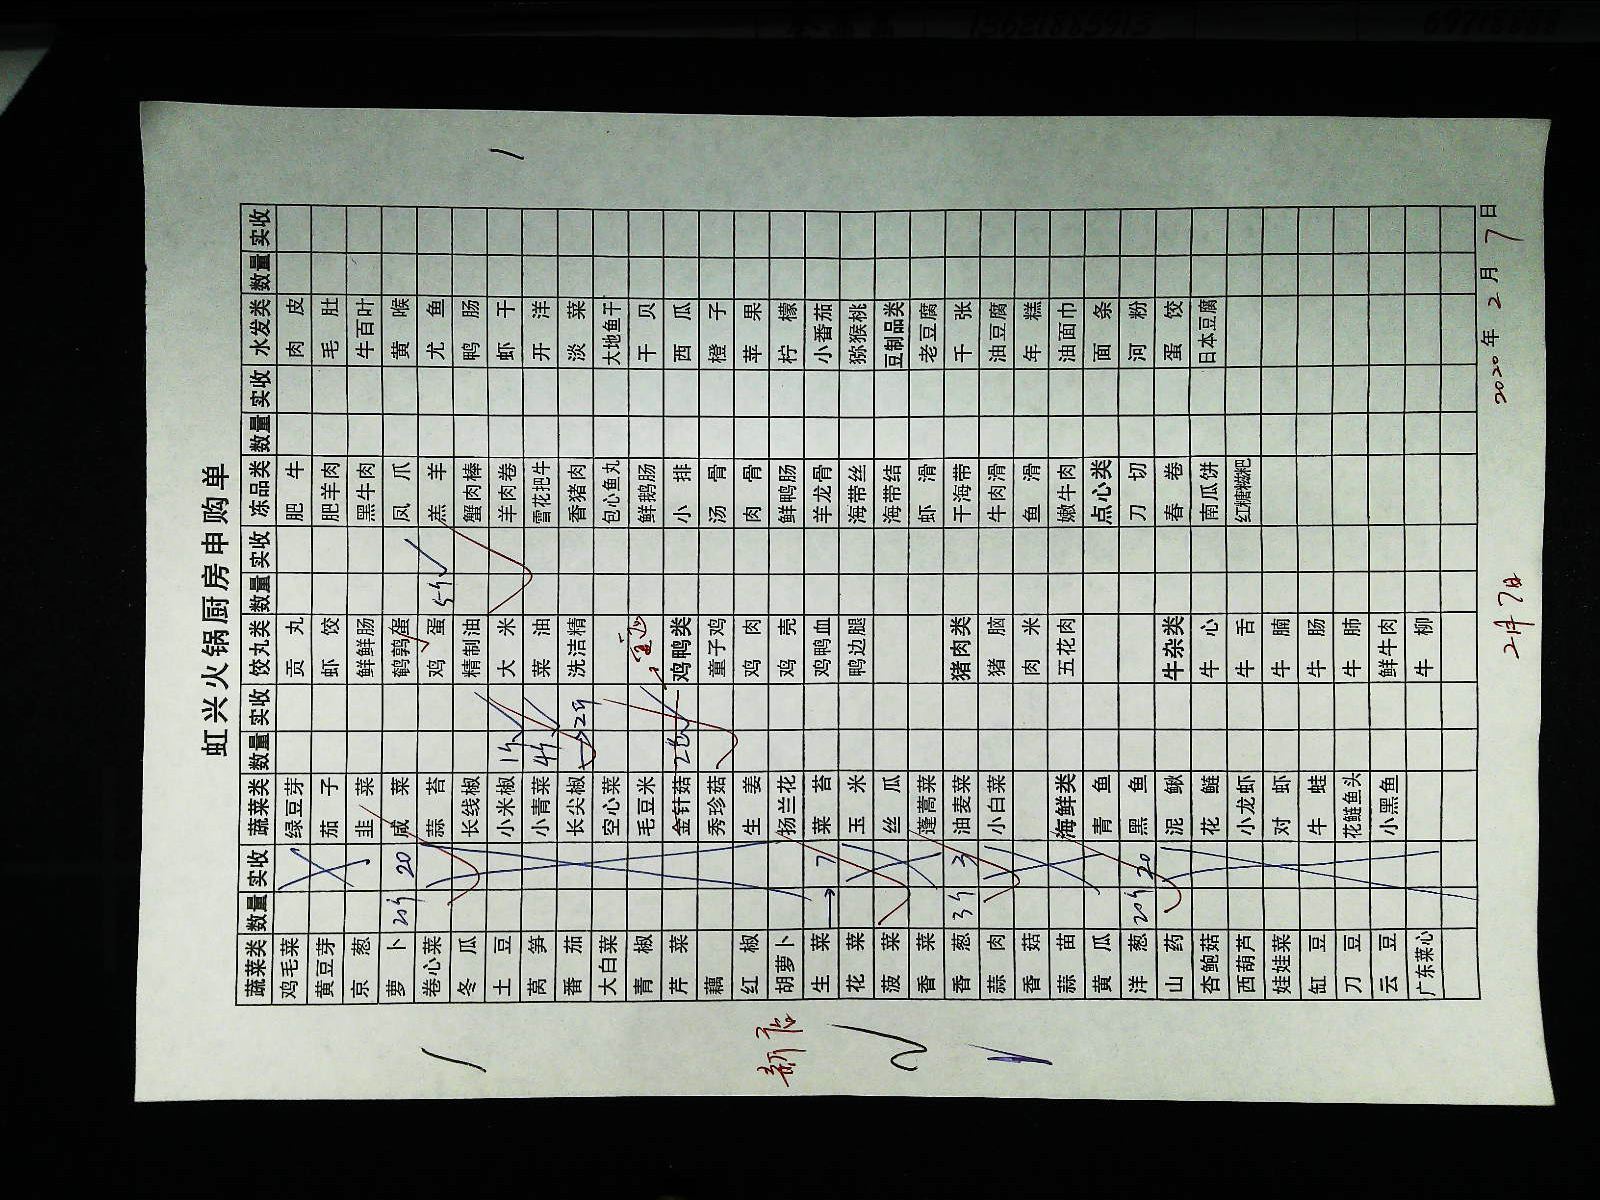 虹兴火锅厨房申购单
蔬菜类 数量 实收 蔬菜类 数量 实收 饺丸类 数量 实收 冻品类 数量 实收 水发类 数量 实收
鸡毛菜 绿豆芽 贡丸 肥牛 肉皮
黄豆芽 茄子 虾饺 肥羊肉 毛肚
京葱 韭菜 鲜鲜肠 黑牛肉 牛百叶
萝卜 20斤 20 咸菜 鹌鹑蛋 凤爪 黄喉
卷心菜 蒜苔 鸡蛋 5斤 羔羊 尤鱼
冬瓜 长线椒 精制油 蟹肉棒 鸭肠
土豆 小米椒 1斤 大米 羊肉卷 虾干
莴笋 小青菜 4斤 菜油 雪花把牛 开洋
番茄 长尖椒 2斤 洗洁精 香猪肉 淡菜
大白菜 空心菜 包心鱼丸 大地鱼干
青椒 毛豆米 鲜鹅肠 干贝
芹菜 金针菇 鸡鸭类 小排 西瓜
藕 秀珍菇 童子鸡 汤骨 橙子
红椒 生姜 鸡肉 肉骨 苹果
胡萝卜 扬兰花 鸡壳 鲜鸭肠 柠檬
生菜 7 菜苔 鸡鸭血 羊龙骨 小番茄
花菜 玉米 鸭边腿 海带丝 猕猴桃
菠菜 丝瓜 海带结 豆制品类
香菜 蓬蒿菜 虾滑 老豆腐
香葱 3斤 3 油麦菜 猪肉类 干海带 干张
蒜肉 小白菜 猪脑 牛肉滑 油豆腐
香菇 肉米 鱼滑 年糕
蒜苗 海鲜类 五花肉 嫩牛肉 油面巾
黄瓜 青鱼 点心类 面条
洋葱 20斤 20 黑鱼 刀切 河粉
山药 泥鳅 牛杂类 春卷 蛋饺
杏鲍菇 花鲢 牛心 南瓜饼 日本豆腐
西葫芦 小龙虾 牛舌 红糖糍粑
娃娃菜 对虾 牛腩
缸豆 牛蛙 牛肠
刀豆 花鲢鱼头 牛肺
云豆 小黑鱼 鲜牛肉
广东菜心 牛柳
新店
2月7日
2020年2月7日